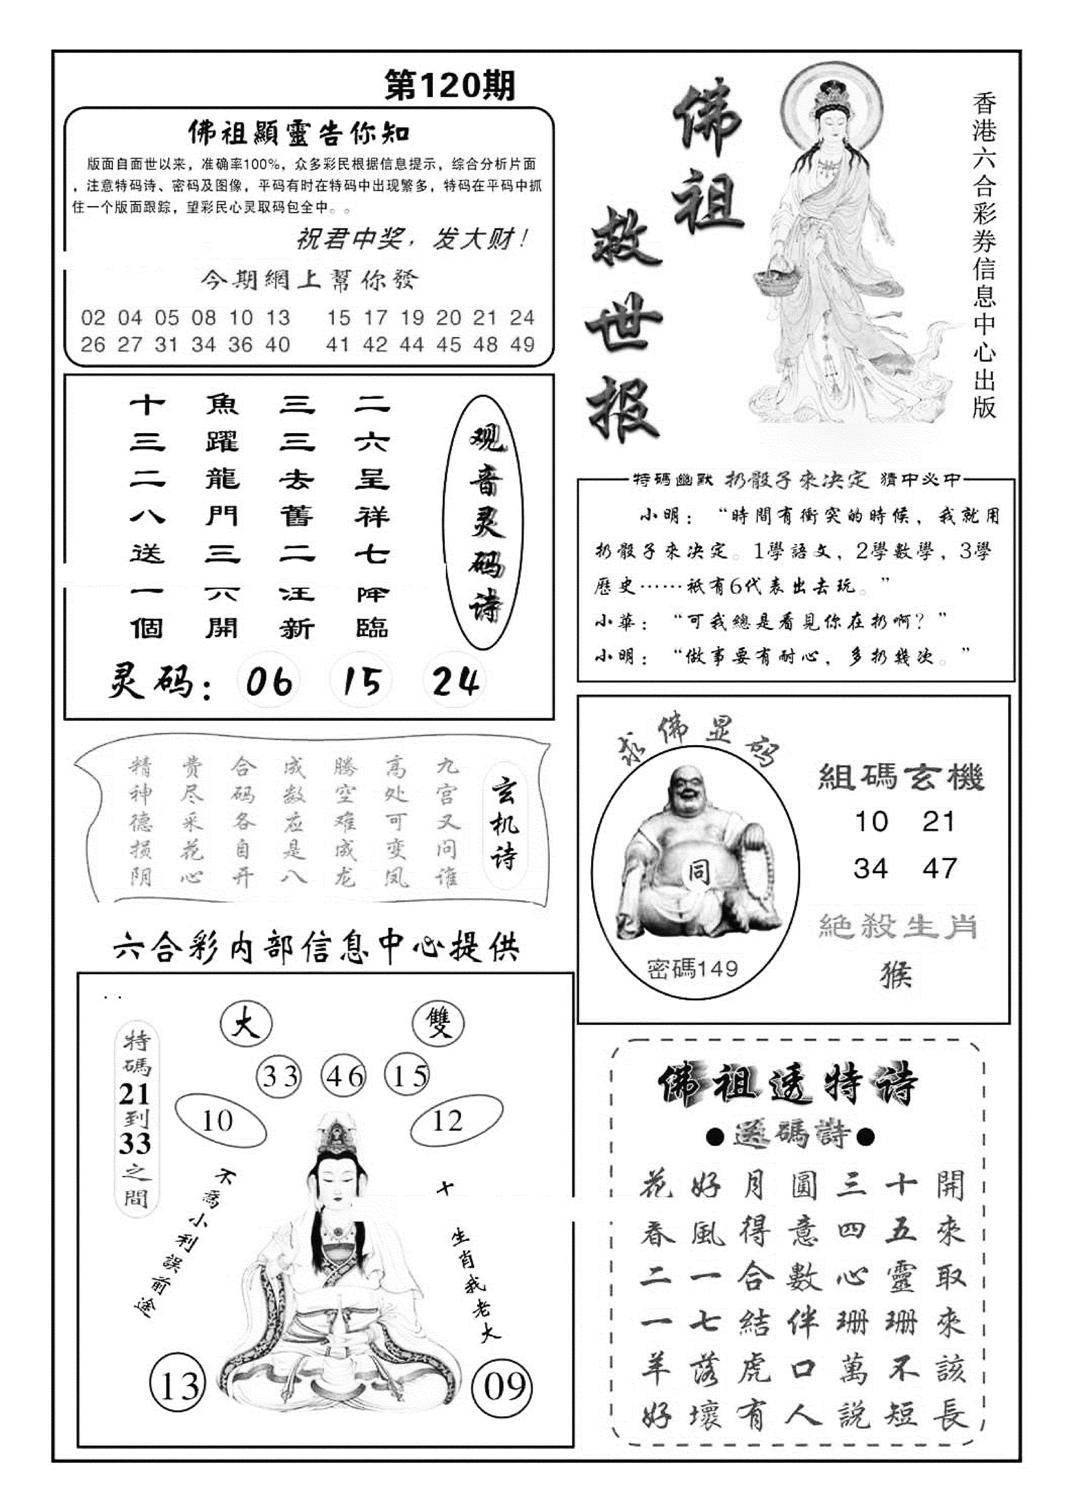 第120期
佛祖顯靈告你知
版面自面世以来，准确率100%，众多彩民根据信息提示，综合分析片面
，注意特码诗、密码及图像，平码有时在特码中出现繁多，特码在平码中抓
住一个版面跟踪，望彩民心灵取码包全中。。
祝君中奖，发大财！
今期網上幫你發
02 04 05 08 10 13 15 17 19 20 21 24
26 27 31 34 36 40 41 42 44 45 48 49
佛祖
救世报
香港六合彩券信息中心出版
观音灵码诗
二六呈祥七降臨
三三去舊二汪新
魚躍龍門三六開
十三二八送一個
灵码：06 15 24
特碼幽默 扔骰子來决定 猜中必中
小明：“時間有衝突的時候，我就用
扔骰子來决定。1學語文，2學數學，3學
歷史……衹有6代表出去玩。”
小華：“可我總是看見你在扔啊？”
小明：“做事要有耐心，多扔幾次。”
玄机诗
九宫又问谁
高处可变凤
腾空难成龙
成数应是八
合码各自开
费尽采花心
精神德损阴
求佛显码
同
密碼149
組碼玄機
10 21
34 47
絕殺生肖
猴
六合彩内部信息中心提供
. .
特碼21到33之間
大 雙
33 46 15
10 12
不爲小利誤前途
十 生肖我老大
13 09
佛祖透特诗
●送碼詩●
花好月圓三十開
春風得意四五來
二一合數心靈取
一七結伴珊珊來
羊落虎口萬不該
好壞有人説短長